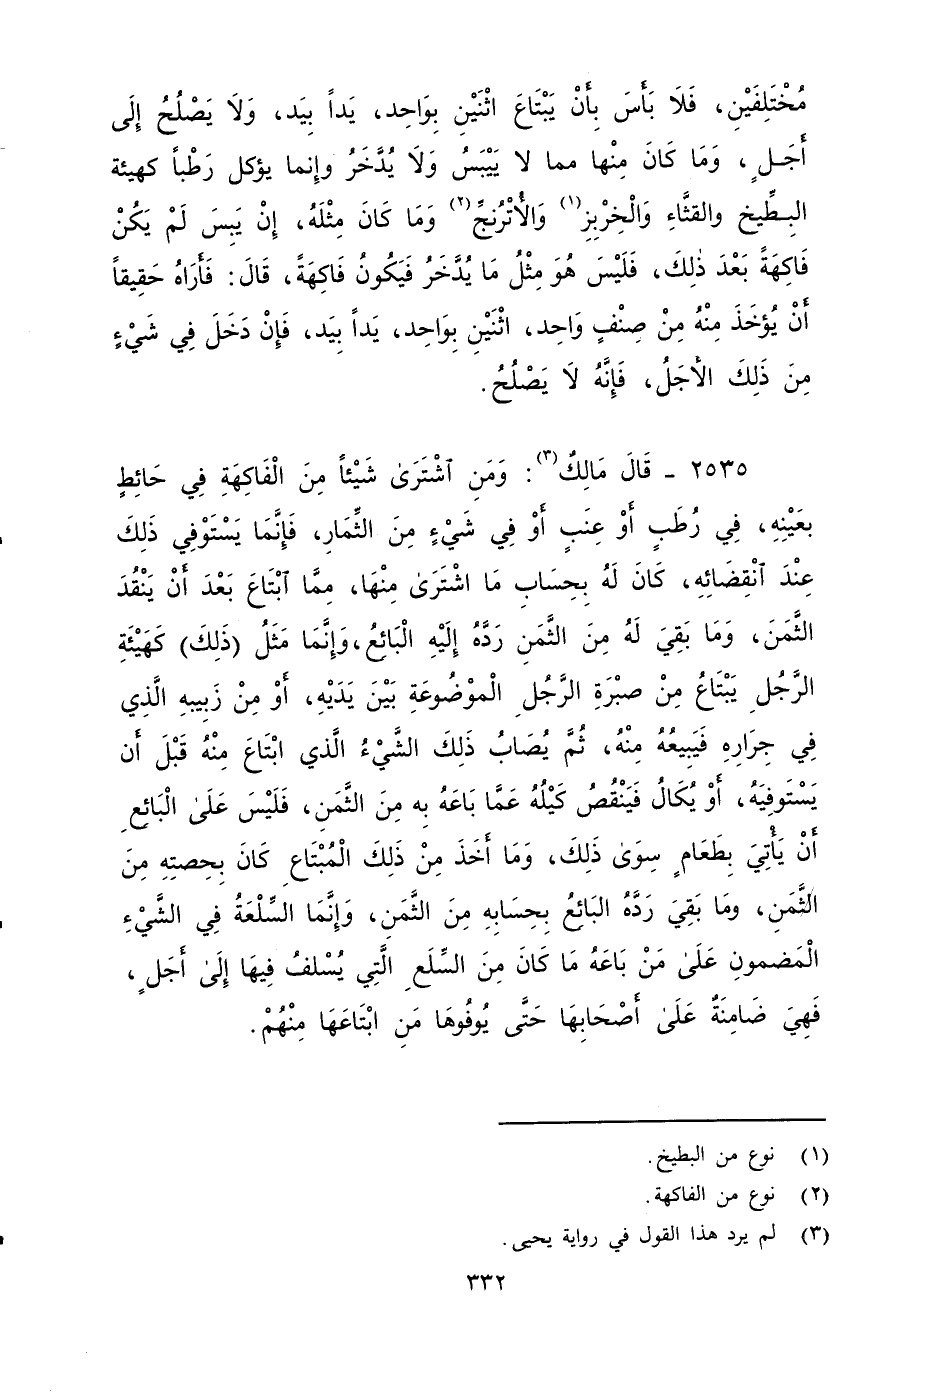 مُخْتَلِفَيْنِ، فَلَا بَأْسَ بِأَنْ يَبْتَاعَ اثْنَيْنِ بِوَاحِد، يَداً بِيَد، وَلَا يَصْلُحُ إِلَى
أَجَلٍ، وَمَا كَانَ مِنْها مما لا يَيْبَسُ وَلَا يُدَّخَرُ وإنما يؤكل رَطْباً كهيئة
البِطِّيخ والقثَّاءِ وَالْخِرْبِزِ(١) وَالأُتْرُنجِّ(٢) وَمَا كَانَ مِثْلَهُ، إِنْ يَبِسَ لَمْ يَكُنْ
فَاكِهَةً بَعْدَ ذٰلِكَ، فَلَيْسَ هُوَ مِثْلُ مَا يُدَّخَرُ فَيَكُونُ فَاكِهَةً، قَالَ: فَأَرَاهُ حَقِيقاً
أَنْ يُؤخَذَ مِنْهُ مِنْ صِنْفٍ وَاحِد، اثْنَيْنِ بِوَاحِد، يَداً بِيَد، فَإِنْ دَخَلَ فِي شَيْءٍ
مِنَ ذَلِكَ الأَجَلُ، فَإِنَّهُ لَا يَصْلُحُ.
٢٥٣٥ - قَالَ مَالِكٌ(٣): وَمَنِ ٱشْتَرَىٰ شَيْئاً مِنَ الْفَاكِهَةِ فِي حَائِطٍ
بِعَيْنِهِ، فِي رُطَبٍ أَوْ عِنَبٍ أَوْ فِي شَيْءٍ مِنَ الثِّمَارِ، فَإِنَّمَا يَسْتَوْفِي ذَلِكَ
عِنْدَ ٱنْقِضَائِهِ، كَانَ لَهُ بِحِسَابِ مَا اشْتَرَىٰ مِنْهَا، مِمَّا ٱبْتَاعَ بَعْدَ أَنْ يَنْقُدَ
الثَّمَنَ، وَمَا بَقِيَ لَهُ مِنَ الثَّمَنِ رَدَّهُ إِلَيْهِ الْبَائِعُ،وَإِنَّمَا مَثَلُ (ذَلِكَ) كَهَيْئَةِ
الرَّجُلِ يَبْتَاعُ مِنْ صبْرَةِ الرَّجُلِ الْموْضُوعَةِ بَيْنَ يَدَيْهِ، أَوْ مِنْ زَبِيبِهِ الَّذِي
فِي جِرَارِهِ فَيَبِيعُهُ مِنْهُ، ثُمَّ يُصَابُ ذَلِكَ الشَّيْءُ الَّذي ابْتَاعَ مِنْهُ قَبْلَ أَن
يَسْتَوفِيَهُ، أَوْ يُكَالُ فَيَنْقُصُ كَيْلُهُ عَمَّا بَاعَهُ بِه مِنَ الثَّمَنِ، فَلَيْسَ عَلَىٰ الْبَائعِ
أَنْ يَأْتِيَ بِطَعَامٍ سِوَىٰ ذَلِكَ، وَمَا أَخَذَ مِنْ ذَلِكَ الْمُبْتَاعِ كَانَ بِحِصتِهِ مِنَ
الثَّمَنِ، وما بَقِيَ رَدَّهُ البَائِعُ بِحِسَابِهِ مِنَ الثَّمَنِ، وَإِنَّمَا السِّلْعَةُ فِي الشَّيْءِ
الْمَضمونِ عَلَىٰ مَنْ بَاعَهُ مَا كَانَ مِنَ السِّلَعِ الَّتِي يُسْلفُ فِيهَا إِلَىٰ أَجَلٍ،
فَهِيَ ضَامِنَةٌ عَلَىٰ أَصْحَابِهَا حَتَّى يُوفُوهَا مَنِ ابْتَاعَهَا مِنْهُمْ.
(١) نوع من البطيخ.
(٢) نوع من الفاكهة.
(٣) لم يرد هذا القول في رواية يحيى.
٣٣٢